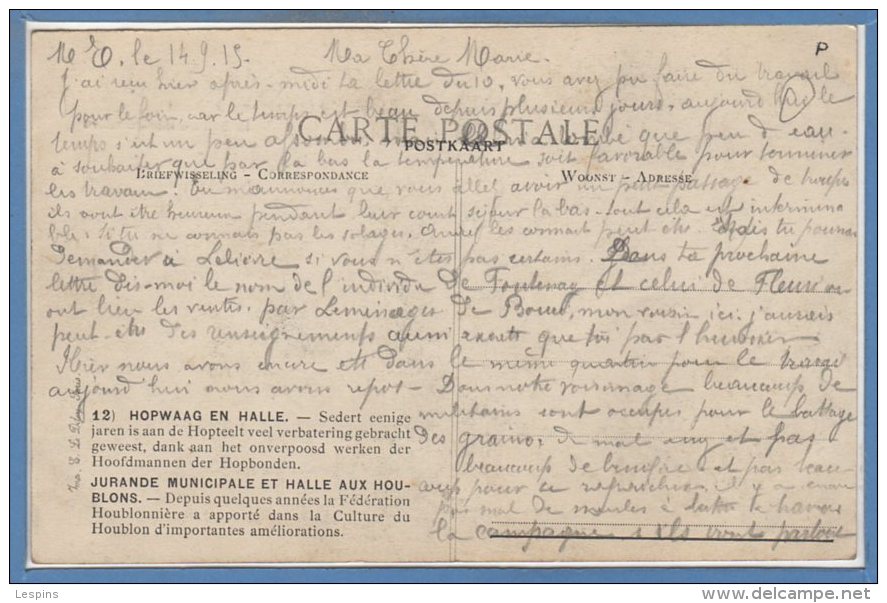 M E, le 14.9.15. Ma Chère Marie. P
J'ai reçu hier après-midi ta lettre du 10, vous avez pu faire du travail
pour le foin, car le temps est beau depuis plusieurs jours, aujourd'hui le
temps s'est un peu que peu d'eau.
CARTE POSTALE
POSTKAART
à souhaiter que par la bas la température soit favorable pour terminer
BRIEFWISSELING - CORRESPONDANCE WOONST - ADRESSE
les travaux. Tu m'annonces que vous allez avoir un petit passage de troupes
ils vont être heureux pendant leur court séjour la bas. tout cela est intermina
ble. si tu ne connais pas les soldats, André les connait peut être. Mais tu pourrais
demander à Lelièvre si vous n'êtes pas certains. Dans ta prochaine
lettre dis-moi le nom de l'individu de et celui de Fleur ou
ont lieu les ventes, par de mon voisin ici. j'aurais
peut-être des renseignements aussi exacts que toi par l'huissier
Hier nous avons encore été dans le même quartier pour le
aujourd'hui nous avons repos - Dans notre voisinage beaucoup de
militaires sont occupés pour le battage
des grains, de mal et pas
beaucoup de et pas beau-
coup pour se il y a encore
pas mal de meules à battre à travers
la campagne s'ils vont partout
12) HOPWAAG EN HALLE. — Sedert eenige
jaren is aan de Hopteelt veel verbatering gebracht
geweest, dank aan het onverpoosd werken der
Hoofdmannen der Hopbonden.
JURANDE MUNICIPALE ET HALLE AUX HOU-
BLONS. — Depuis quelques années la Fédération
Houblonnière a apporté dans la Culture du
Houblon d'importantes améliorations.
Lespins
delcampe.net